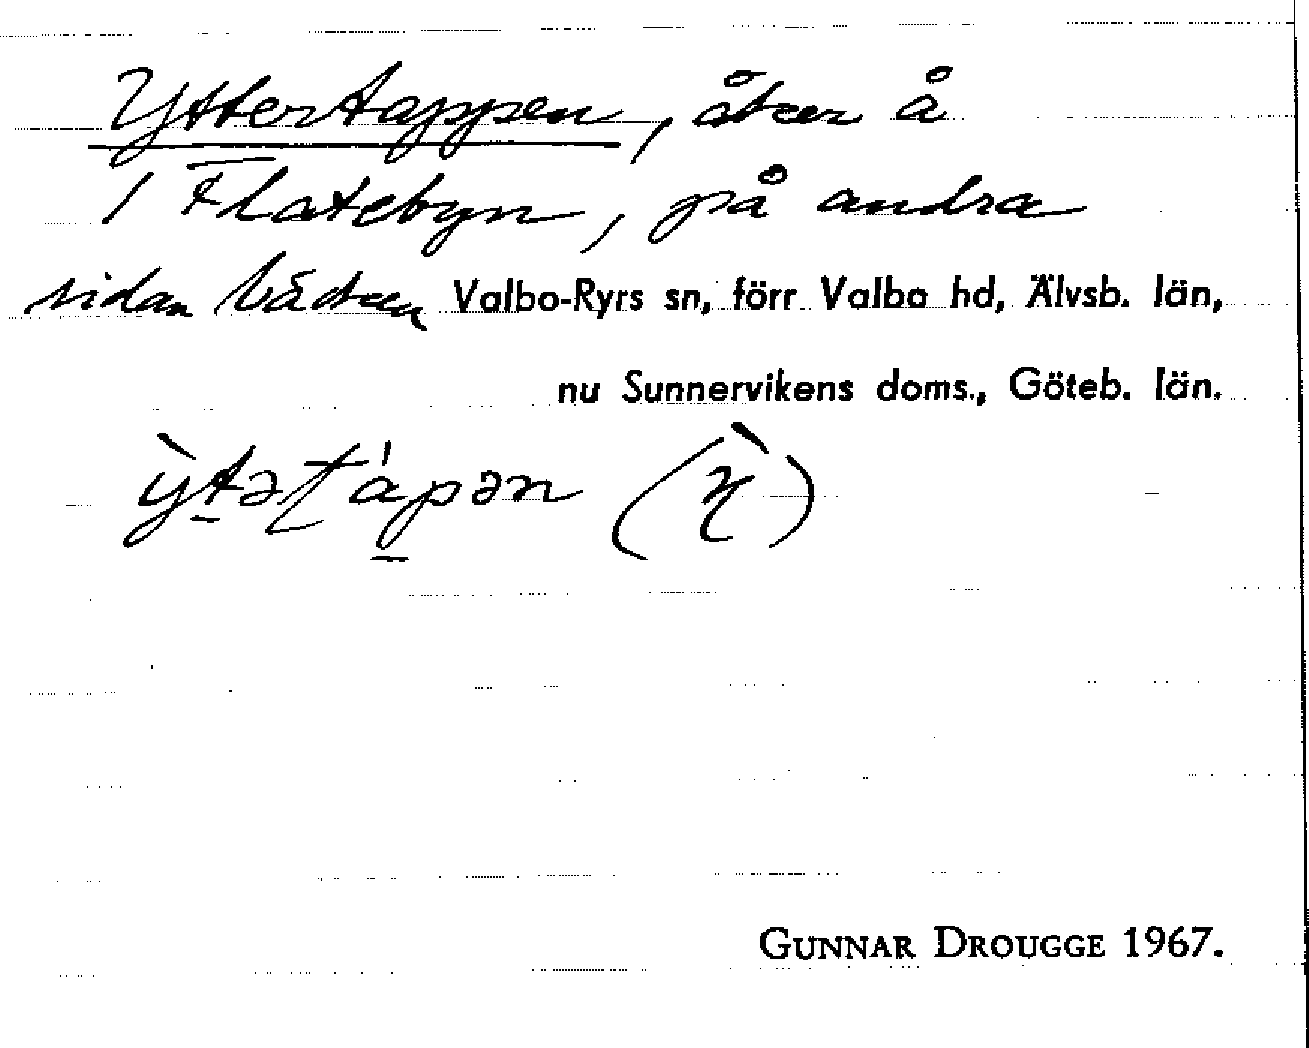 Yttertappen, åker å
1 Flatebyn, på andra
sidan bäcken Valbo-Ryrs sn, förr Valbo hd, Älvsb. län,
nu Sunnervikens doms., Göteb. län.
ỳtətápən
GUNNAR DROUGGE 1967.